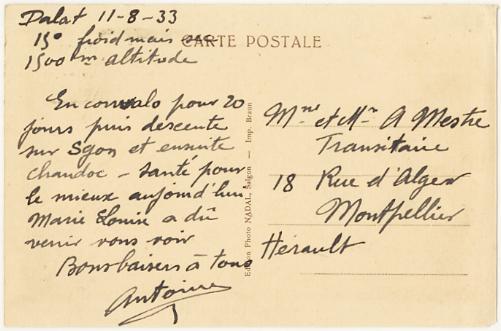 Dalat 11-8-33
15° froid mais
1500 m altitude
CARTE POSTALE
En convalo pour 20
jours puis descente
sur Sgon et ensuite
chaudoc - santé pour
le mieux aujourd'hui
Marie Louise a dû
venir vous voir
Bons baisers à tous
Antoine
Edition Photo NADAL, Saigon — Imp. Braun
Mme et Mr A Mestre
Transitaire
18 Rue d'Alger
Montpellier
Hérault